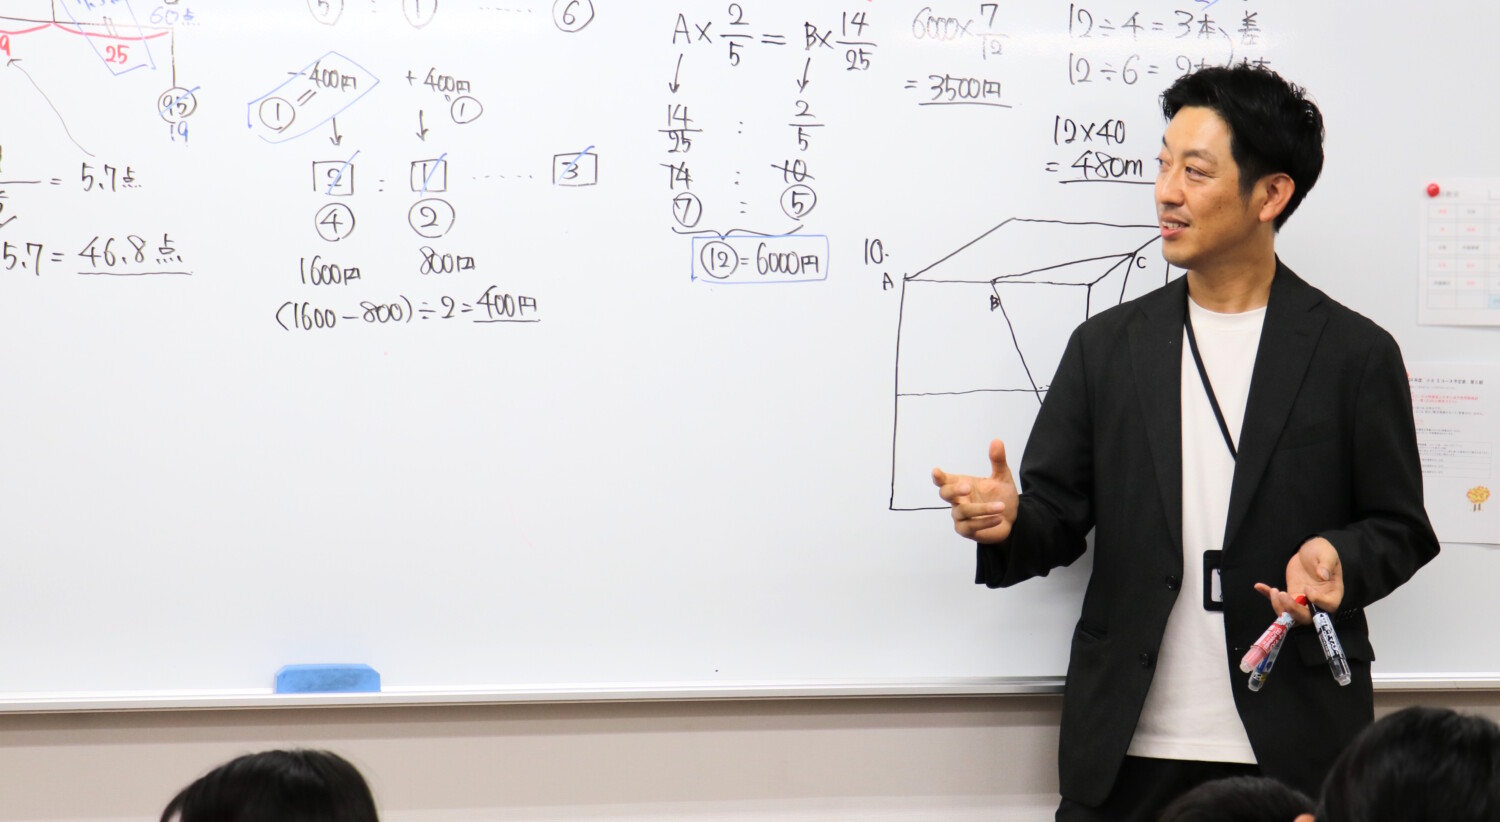 60点
9
25
95
19
= 5.7点
5.7 = 46.8点
⑤ : ① ...... ⑥
-400円 +400円
① ①
2 : 1 ...... 3
④ ②
1600円 800円
(1600-800)÷2=400円
A×2/5 = B×14/25
14/25 : 2/5
14 : 10
⑦ : ⑤
⑫=6000円
6000×7/12
=3500円
12÷4=3本
12÷6=2本
12×40
=480m
10.
A
B
C